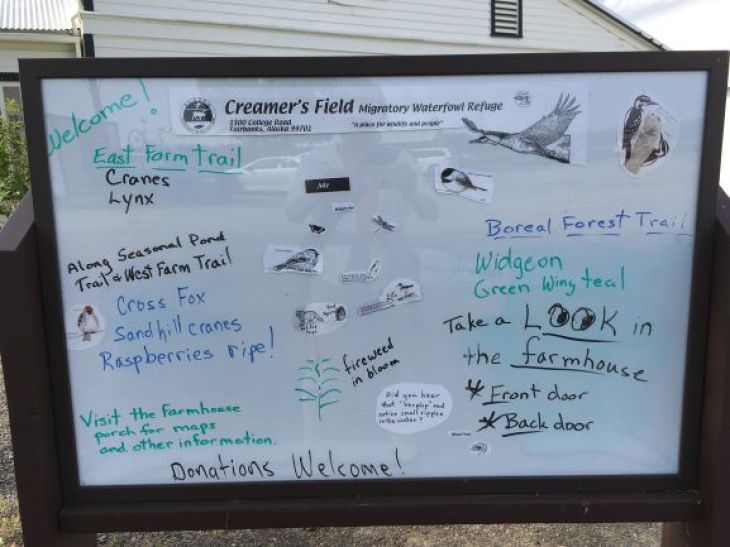 Welcome!
Creamer's Field Migratory Waterfowl Refuge
1300 College Road
Fairbanks, Alaska 99701
"a place for wildlife and people"
East Farm Trail
Cranes
Lynx
July
Along Seasonal Pond
Trail & West Farm Trail
Cross Fox
Sandhill cranes
Raspberries ripe!
fireweed
in bloom
Did you hear
that "kerplop" and
notice small ripples
in the water?
Visit the Farmhouse
porch for maps
and other information.
Donations Welcome!
Boreal Forest Trail
Widgeon
Green Wing teal
Take a LOOK in
the farmhouse
*Front door
*Back door